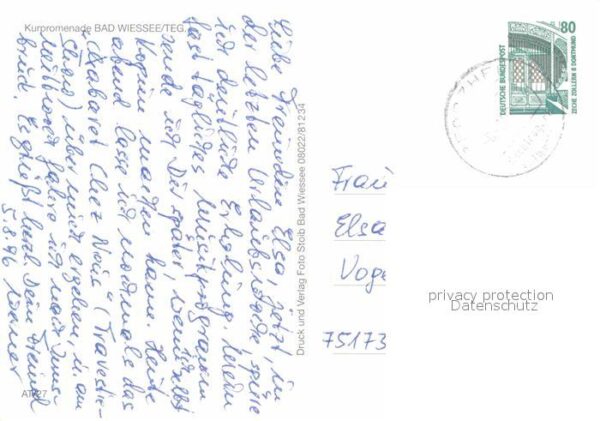 Kurpromenade BAD WIESSEE/TEG.
Liebe Freundin Elsa, jetzt in
der letzten Urlaubswoche spüre
ich deutliche Erholung. Deren
fast tägliches Musikprogramm
sende ich Dir später, wenn ich selbst
Kopien machen kann. Heute
abend lasse ich nochmals das
"Kabaret Chez Nous" (Travestie-
Show) über mich ergehen, u. am
Mittwoch fahre ich nach Inns-
bruck. Es grüßt herzl. Dein Freund
5.8.96 Werner
AT/27
Druck und Verlag Foto Stoib Bad Wiessee 08022/81234
80
DEUTSCHE BUNDESPOST
ZECHE ZOLLERN II DORTMUND
Frau
Elsa
Voge
75173
privacy protection
Datenschutz